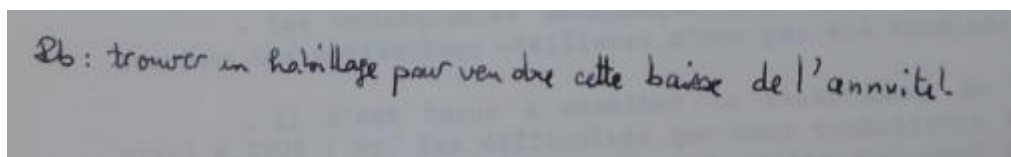 Pb : trouver un habillage pour vendre cette baisse de l'annuité.